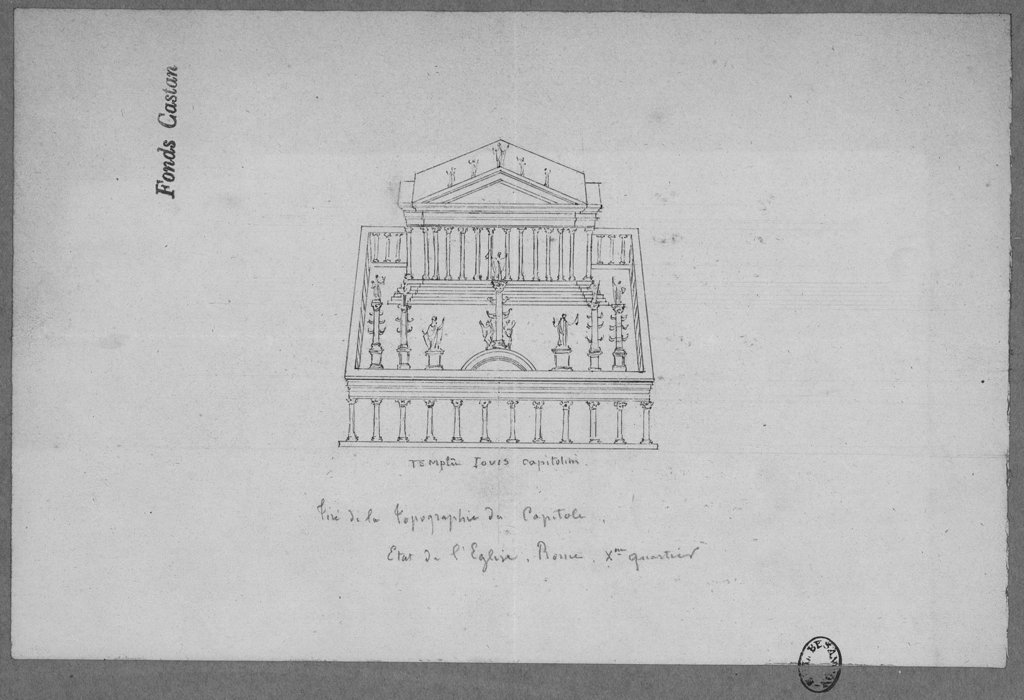 Fonds Castan
TEMplũ Jovis capitolini.
Tiré de la Topographie du Capitole.
Etat de l'Eglise. Rome. Xme quartier